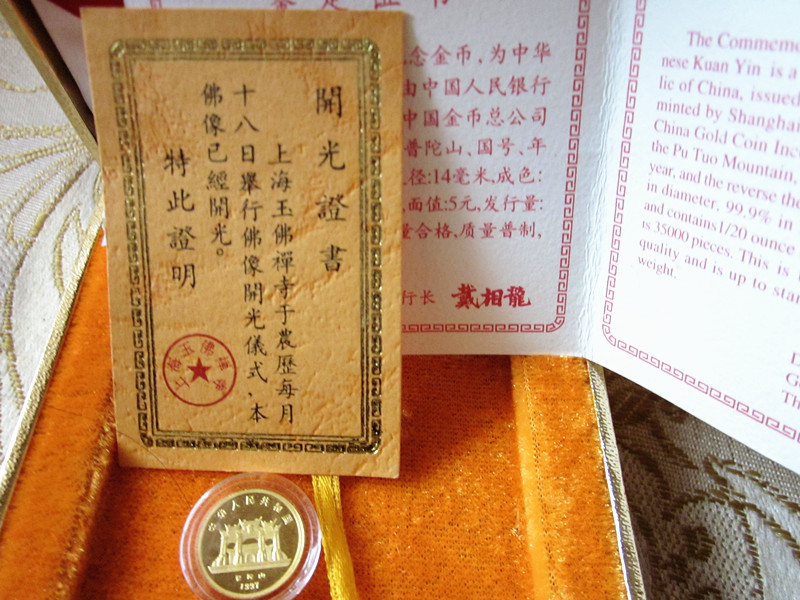 開光證書
上海玉佛禪寺于農歷每月
十八日舉行佛像開光儀式、本
佛像已經開光。
特此證明
上海玉佛禪寺
鉴定证书
念金币，为中华
由中国人民银行
中国金币总公司
普陀山、国号、年
径:14毫米,成色:
面值:5元,发行量:
量合格,质量普制,
行长 戴相龍
The Commem
nese Kuan Yin is a
lic of China, issued
minted by Shanghai
China Gold Coin Inc
the Pu Tuo Mountain,
year, and the reverse the
in diameter, 99.9% in
and contains 1/20 ounce
is 35000 pieces. This is
quality and is up to sta
weight.
Th
中华人民共和国
1997